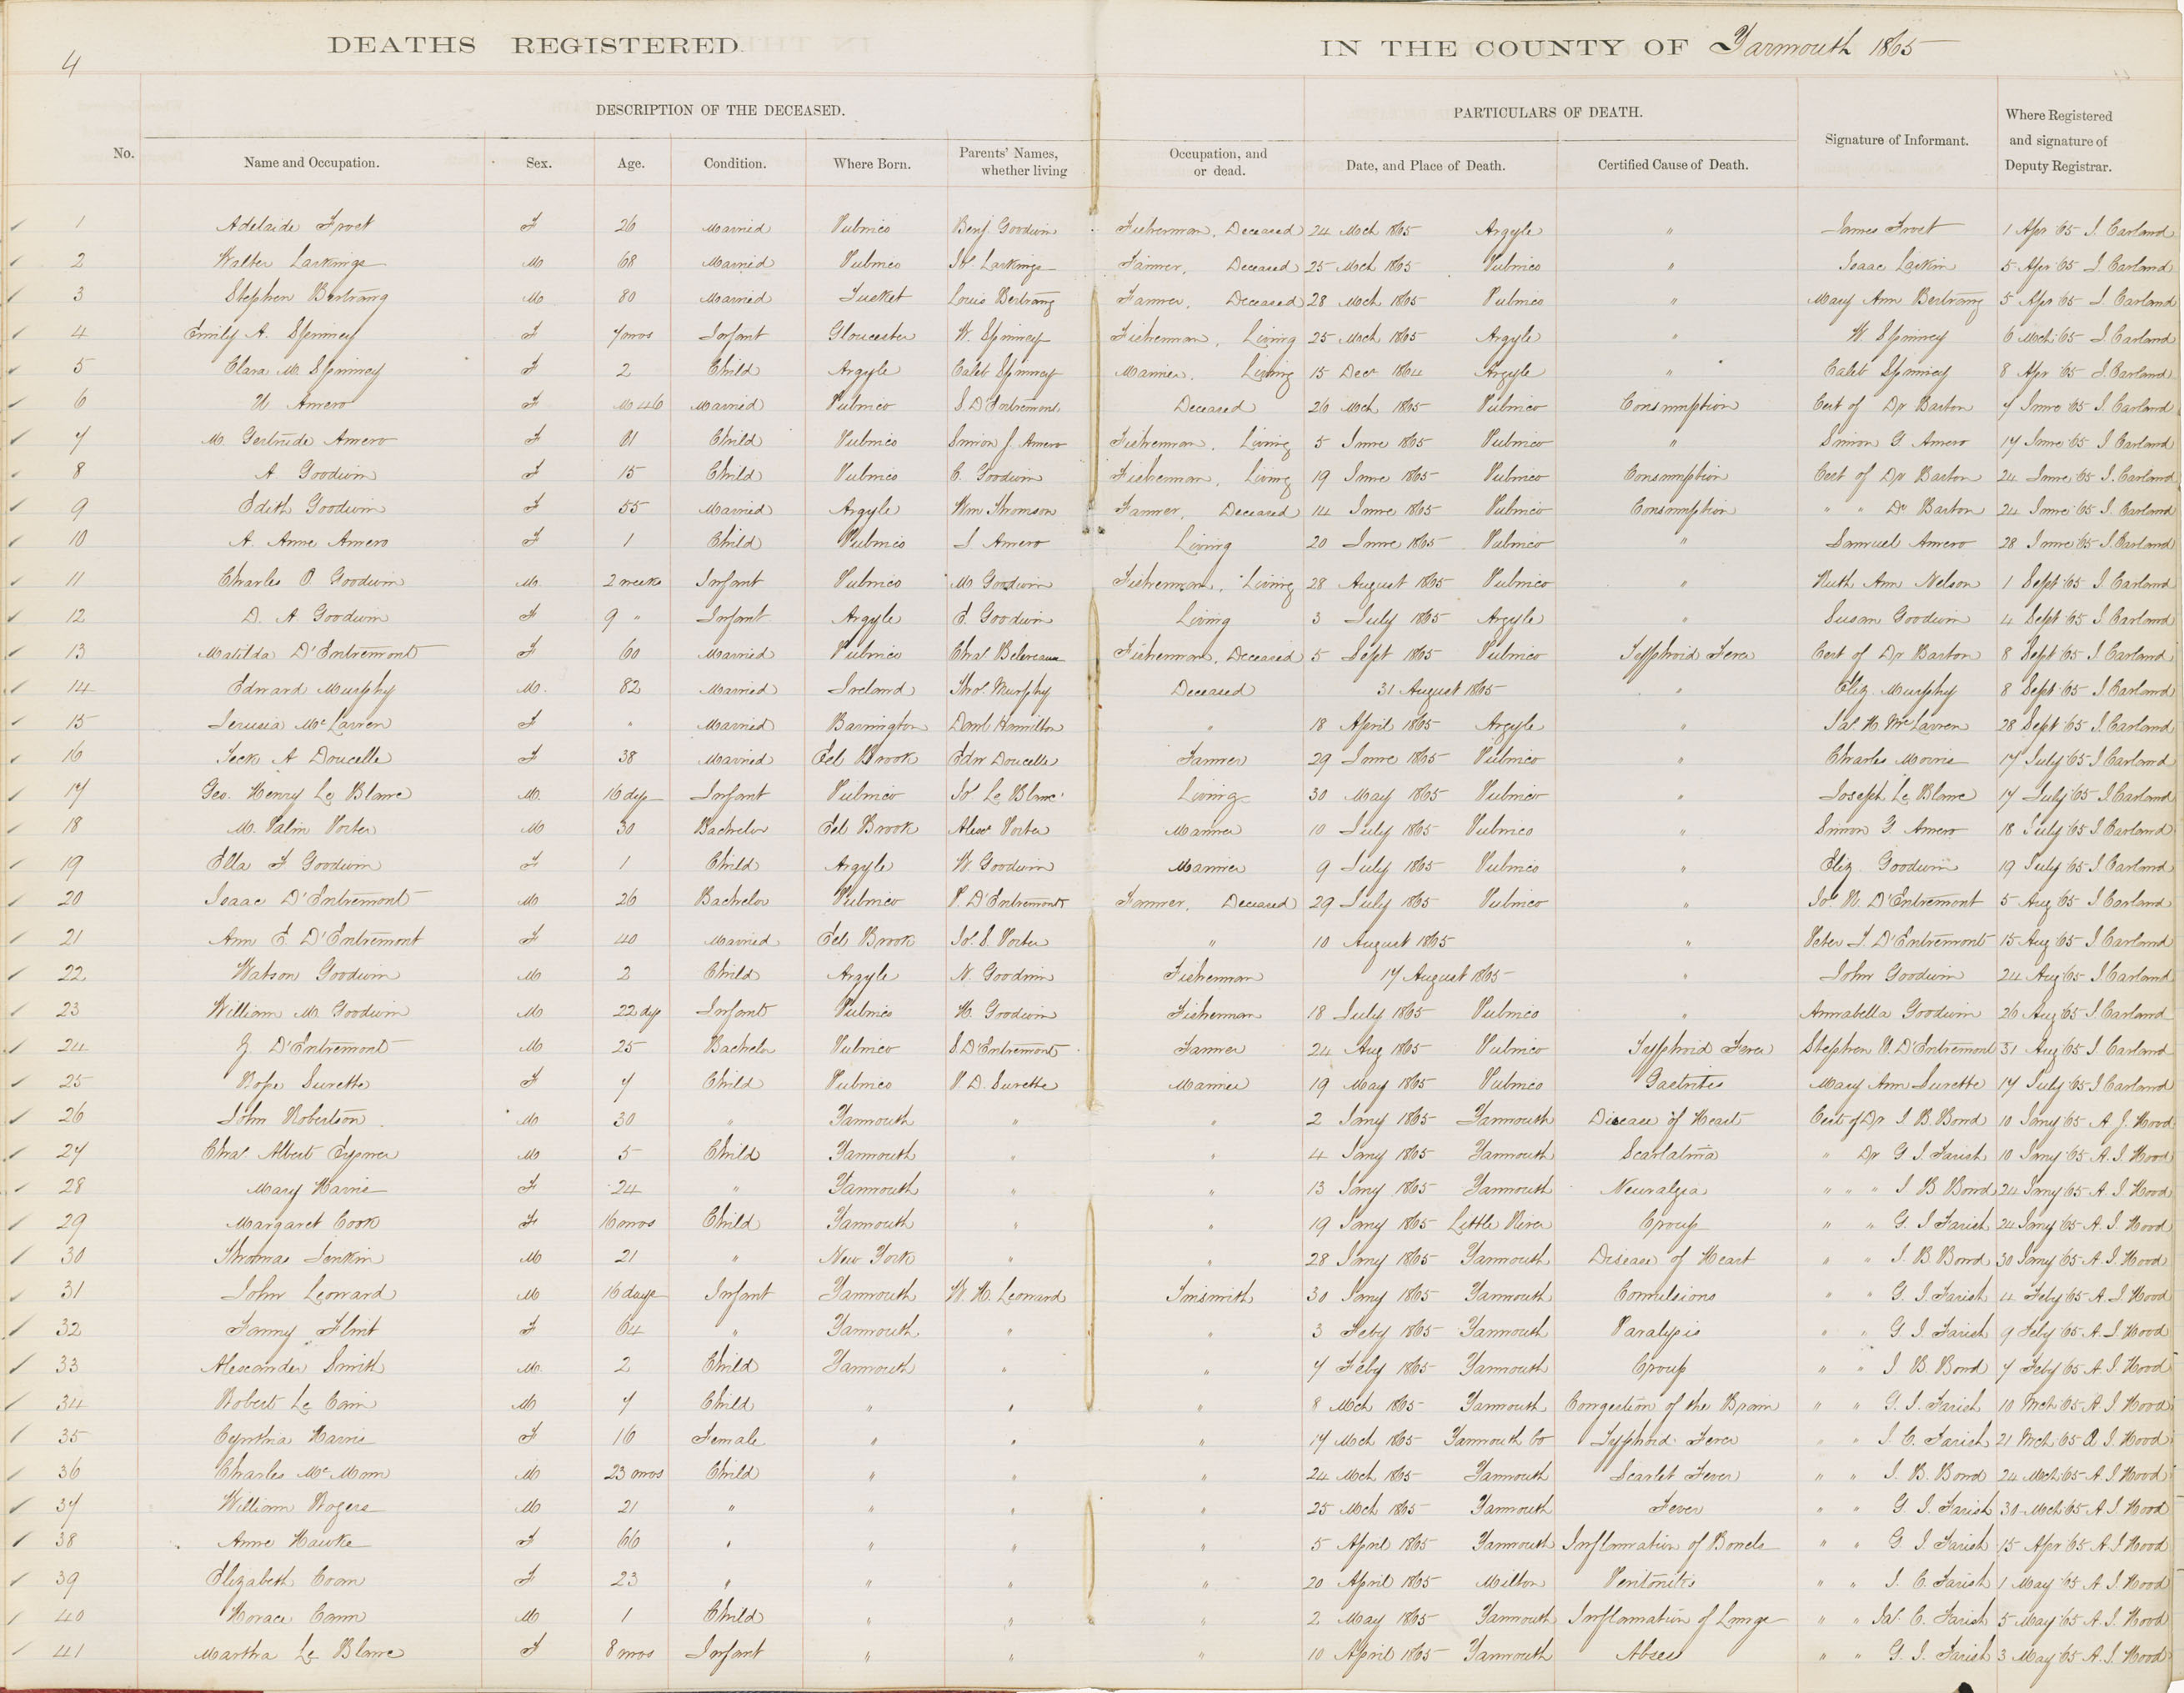 4
DEATHS REGISTERED IN THE COUNTY OF Yarmouth 1865
DESCRIPTION OF THE DECEASED. PARTICULARS OF DEATH.
No. Name and Occupation. Sex. Age. Condition. Where Born. Parents' Names, whether living Occupation, and or dead. Date, and Place of Death. Certified Cause of Death. Signature of Informant. Where Registered and signature of Deputy Registrar.
1 Adelaide Frost F 26 Married Pubnico Benj. Goodwin Fisherman, Deceased 24 Mch 1865 Argyle " James Frost 1 Apr '65 J. Carland
2 Walter Larkings M 68 Married Pubnico Larkings Farmer, Deceased 25 Mch 1865 Pubnico " Isaac Larkin 5 Apr '65 J. Carland
3 Stephen Bertrang M 80 Married Tusket Louis Bertrang Farmer, Deceased 28 Mch 1865 Pubnico " Mary Ann Bertrang 5 Apr '65 J. Carland
4 Emily A. Spinney F 7 mos Infant Gloucester W. Spinney Fisherman, Living 25 Mch 1865 Argyle " W. Spinney 6 Mch '65 J. Carland
5 Clara M. Spinney F 2 Child Argyle Caleb Spinney Mariner, Living 15 Decr 1864 Argyle " Caleb Spinney 8 Apr '65 J. Carland
6 Amero F 46 Married Pubnico S. D'Entremont Deceased 26 Mch 1865 Pubnico Consumption Cert of Dr Barton 7 June '65 J. Carland
7 M. Gertrude Amero F 01 Child Pubnico Simon J. Amero Fisherman, Living 5 June 1865 Pubnico " Simon G. Amero 17 June '65 J. Carland
8 A. Goodwin F 15 Child Pubnico C. Goodwin Fisherman, Living 19 June 1865 Pubnico Consumption Cert of Dr Barton 24 June '65 J. Carland
9 Edith Goodwin F 55 Married Argyle Wm Thomson Farmer, Deceased 14 June 1865 Pubnico Consumption " " Dr Barton 24 June '65 J. Carland
10 A. Anne Amero F 1 Child Pubnico S. Amero Living 20 June 1865 Pubnico " Samuel Amero 28 June '65 J. Carland
11 Charles O Goodwin M 2 weeks Infant Pubnico M. Goodwin Fisherman, Living 28 August 1865 Pubnico " Ruth Ann Nelson 1 Sept '65 J. Carland
12 D. A Goodwin F 9 " Infant Argyle E. Goodwin Living 3 July 1865 Argyle " Susan Goodwin 4 Sept '65 J. Carland
13 Matilda D'Entremont F 60 Married Pubnico Chas Fisherman, Deceased 5 Sept 1865 Pubnico Typhoid Fever Cert of Dr Barton 8 Sept '65 J. Carland
14 Edward Murphy M. 82 Married Ireland Thos. Murphy Deceased 31 August 1865 " Eliz Murphy 8 Sept '65 J. Carland
15 Jerusia McLarren F " Married Barrington Danl Hamilton " 18 April 1865 Argyle " Jas. H. McLarren 28 Sept '65 J. Carland
16 A Doucette F 38 Married Eel Brook Edw Doucette Farmer 29 June 1865 Pubnico " Charles Morris 17 July '65 J. Carland
17 Geo. Henry Le Blanc M. 16 dys Infant Pubnico Jos Le Blanc Living 30 May 1865 Pubnico " Joseph Le Blanc 17 July '65 J. Carland
18 M. Palin Porter M 30 Bachelor Eel Brook Alexr Porter Mariner 10 July 1865 Pubnico " Simon G. Amero 18 July '65 J. Carland
19 Ella F Goodwin F 1 Child Argyle W. Goodwin Mariner 9 July 1865 Pubnico " Eliz Goodwin 19 July '65 J. Carland
20 Isaac D'Entremont M 26 Bachelor Pubnico P. D'Entremont Farmer, Deceased 29 July 1865 Pubnico " Jos. N. D'Entremont 5 Aug '65 J. Carland
21 Ann E. D'Entremont F 40 Married Eel Brook Jos. S. Porter " 10 August 1865 " Peter D'Entremont 15 Aug '65 J. Carland
22 Watson Goodwin M 2 Child Argyle N. Goodwin Fisherman 17 August 1865 " John Goodwin 24 Aug '65 J. Carland
23 William M. Goodwin M 22 dys Infant Pubnico H. Goodwin Fisherman 18 July 1865 Pubnico " Annabella Goodwin 26 Aug '65 J. Carland
24 D'Entremont M 25 Bachelor Pubnico S D'Entremont Farmer 24 Aug 1865 Pubnico Typhoid Fever Stephen D'Entremont 31 Aug '65 J. Carland
25 Rose Surette F 7 Child Pubnico P. D. Surette Mariner 19 May 1865 Pubnico Gastritis Mary Ann Surette 17 July '65 J. Carland
26 John Robertson M 30 " Yarmouth " " 2 Jany 1865 Yarmouth Disease of Heart Cert of Dr J. B. Bond 10 Jany '65 A. J. Hood
27 Chas Albert M 5 Child Yarmouth " " 4 Jany 1865 Yarmouth Scarlatina " Dr G. J. Farish 10 Jany '65 A. J. Hood
28 Mary Harris F 24 " Yarmouth " " 13 Jany 1865 Yarmouth Neuralgia " " " J B Bond 24 Jany '65 A. J. Hood
29 Margaret Cook F 16 mos Child Yarmouth " " 19 Jany 1865 Little River Croup " " G. J. Farish 24 Jany '65 A. J. Hood
30 Thomas Jenkin M 21 " New York " " 28 Jany 1865 Yarmouth Disease of Heart " " J. B Bond 30 Jany '65 A. J. Hood
31 John Leonard M 16 days Infant Yarmouth W. H. Leonard Tinsmith 30 Jany 1865 Yarmouth Convulsions " " G. J. Farish 4 Feby '65 A. J. Hood
32 Fanny Flint F 64 " Yarmouth " " 3 Feby 1865 Yarmouth Paralysis " " G. J. Farish 9 Feby '65 A. J. Hood
33 Alexander Smith M. 2 Child Yarmouth " " 7 Feby 1865 Yarmouth Croup " " J B Bond 7 Feby '65 A. J. Hood
34 Robert Le Cain M 7 Child " " " 8 Mch 1865 Yarmouth Congestion of the Brain " " G. J. Farish 10 Mch '65 A. J. Hood
35 Cynthia Harris F 16 Female " " " 17 Mch 1865 Yarmouth Co Typhoid Fever " " J. C. Farish 21 Mch '65 A. J. Hood
36 Charles M 23 mos Child " " " 24 Mch 1865 Yarmouth Scarlet Fever " " J. B. Bond 24 Mch '65 A. J. Hood
37 William Rogers M 21 " " " " 25 Mch 1865 Yarmouth Fever " " G J. Farish 30 Mch '65 A. J. Hood
38 Anne Hawke F 66 " " " " 5 April 1865 Yarmouth Inflamation of Bowels " " G. J. Farish 15 Apr '65 A. J. Hood
39 Elizabeth F 23 " " " " 20 April 1865 Milton Peritonitis " " J. C. Farish 1 May '65 A. J. Hood
40 Horace Cann M 1 Child " " " 2 May 1865 Yarmouth Inflamation of Lungs " " Jas. C. Farish 5 May '65 A. J. Hood
41 Martha Le Blanc F 8 mos Infant " " " 10 April 1865 Yarmouth Abscess " " G. J. Farish 3 May '65 A. J. Hood